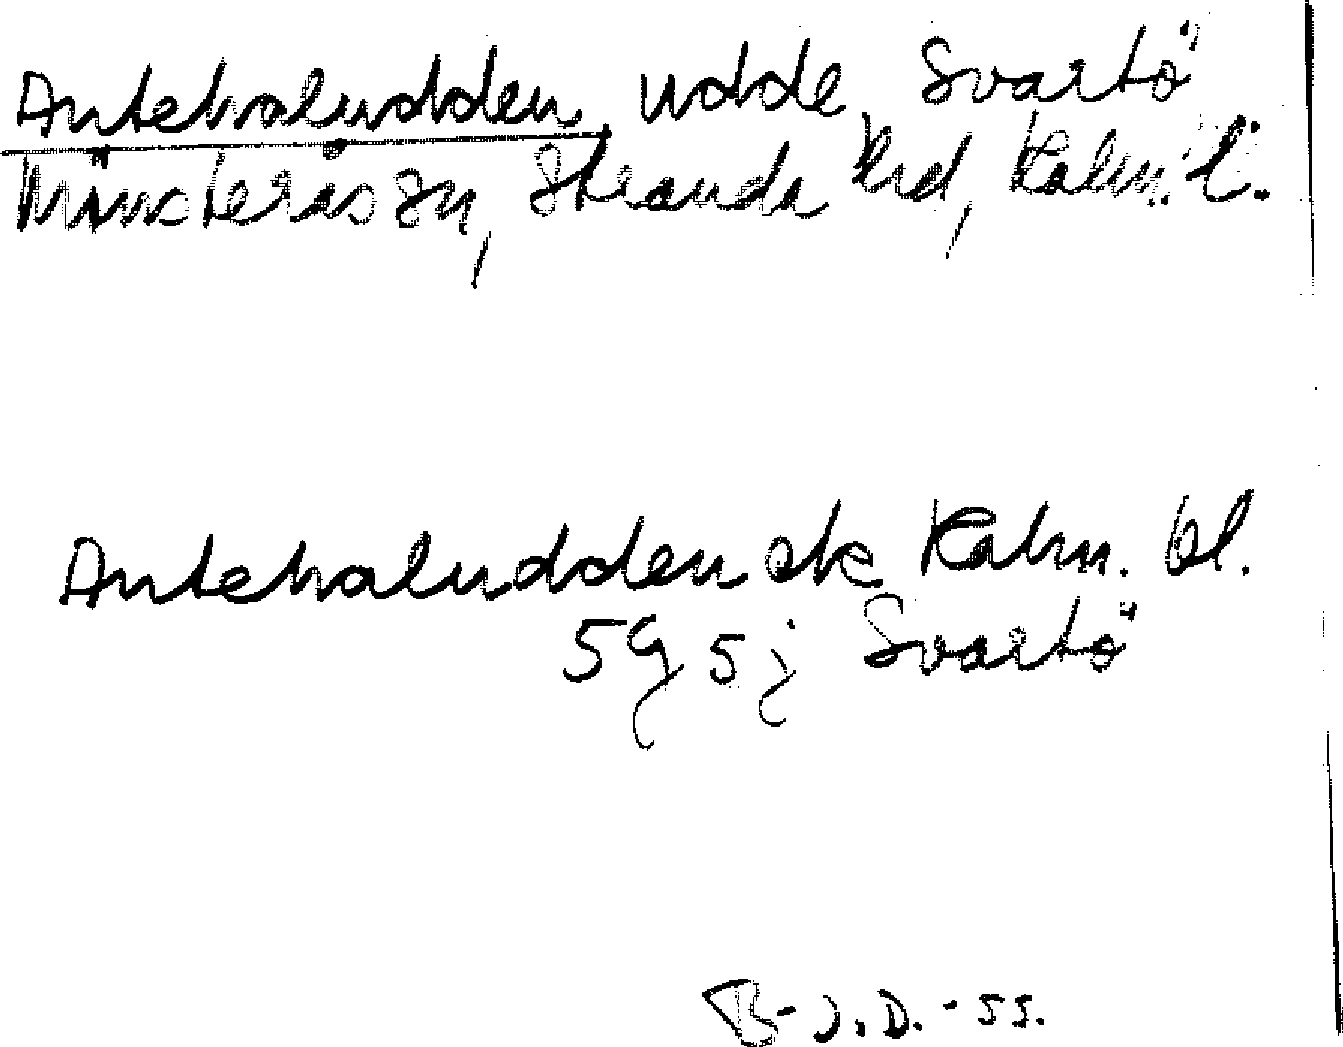 Antehaludden, udde, Svartö
Mönsterås sn, Stranda hd, Kalm. l.
Antehaludden ek Kalm. bl.
5G 5j Svartö
B-J.D. -55.